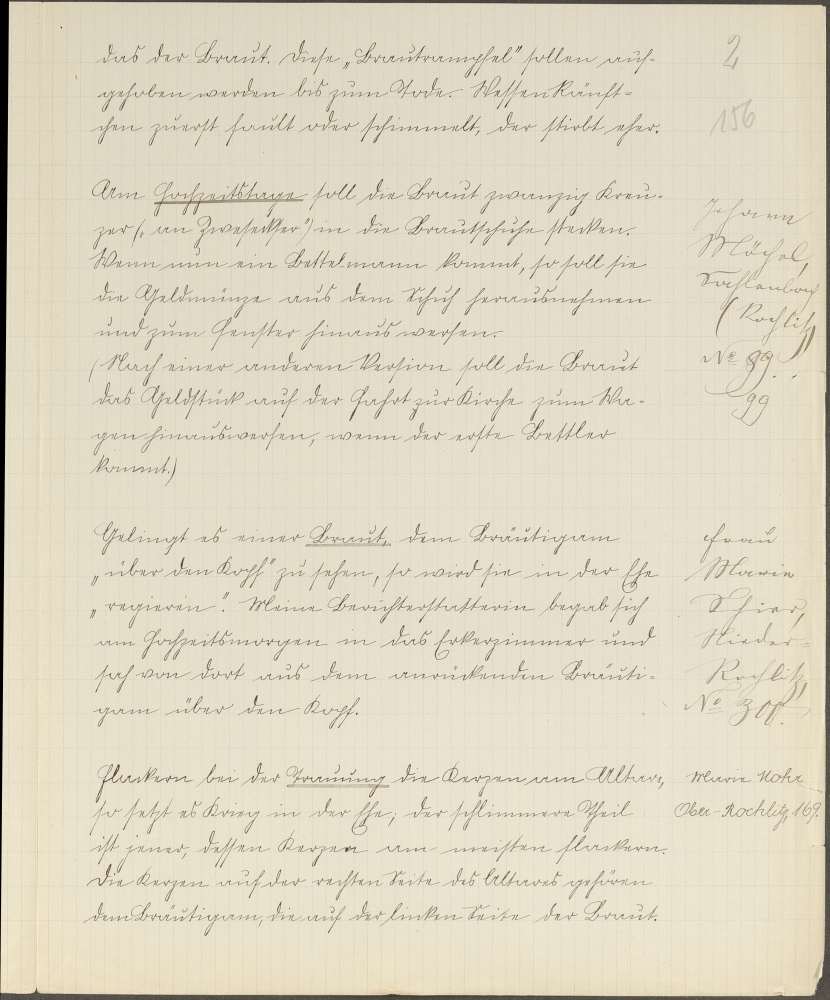 2
156
das der Braut. Diese „Brautrampfel" sollen auf-
gehoben werden bis zum Tode. Wessen Ränft-
chen zuerst fault oder schimmelt, der stirbt eher.
Am Hochzeitstage soll die Braut zwanzig Kreu-
zer („an Zwesechser") in die Brautschuhe stecken.
Wenn nun ein Bettelmann kommt, so soll sie
die Geldmünze aus dem Schuh herausnehmen
und zum Fenster hinauswerfen.
(Nach einer anderen Version soll die Braut
das Geldstück auf der Fahrt zur Kirche zum Wa-
gen hinauswerfen, wenn der erste Bettler
kommt.)
Johann
Möchel,
Sahlenbach
(Rochlitz)
No 99.
99
Gelingt es einer Braut, dem Bräutigam
„über den Kopf" zu sehen, so wird sie in der Ehe
„regieren". Meine Berichterstatterin begab sich
am Hochzeitsmorgen in das Erkerzimmer und
sah von dort aus dem anrückenden Bräuti-
gam über den Kopf.
Frau
Marie
Schier,
Nieder-
Rochlitz,
No
Flackern bei der Trauung die Kerzen am Altar,
so setzt es Krieg in der Ehe; der schlimmere Theil
ist jener, dessen Kerzen am meisten flackern.
Die Kerzen auf der rechten Seite des Altares gehören
dem Bräutigam, die auf der linken Seite der Braut.
Marie Kohr
Ober-Rochlitz 169.